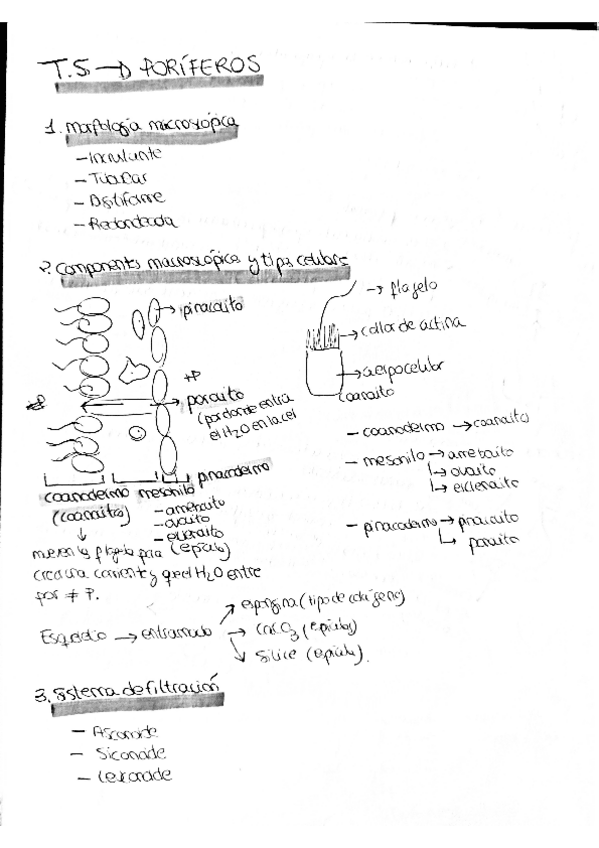 T.5. → PORÍFEROS
1. Morfología microscópica
- Incrustante
- Tubular
- Digitiforme
- Redondeada
2. Components macroscópics y tips celulars
→ pinacocito
→ flagelo
→ collar de actina
+P
→ cuerpo celular
→ porocito
(por donde entra
el H2O en la cel
coanocito
-P
- coanodermo → coanocito
- mesohilo → amebocito
↳ ovocito
↳ esclerocito
coanodermo mesohilo pinacodermo
(coanocitos)
- amebocito
- ovocito
- esclerocito
(espícula)
- pinacodermo → pinacocito
↳ porocito
↓
mueven los flagelos para
crear una corriente y que el H2O entre
por ≠ P.
Esqueleto → entramado
↗ espongina (tipo de colágeno)
→ CaCO3 (espículas)
↘ Sílice (espícula).
3. Sistema de filtración
- Asconoide
- Siconoide
- Leuconoide